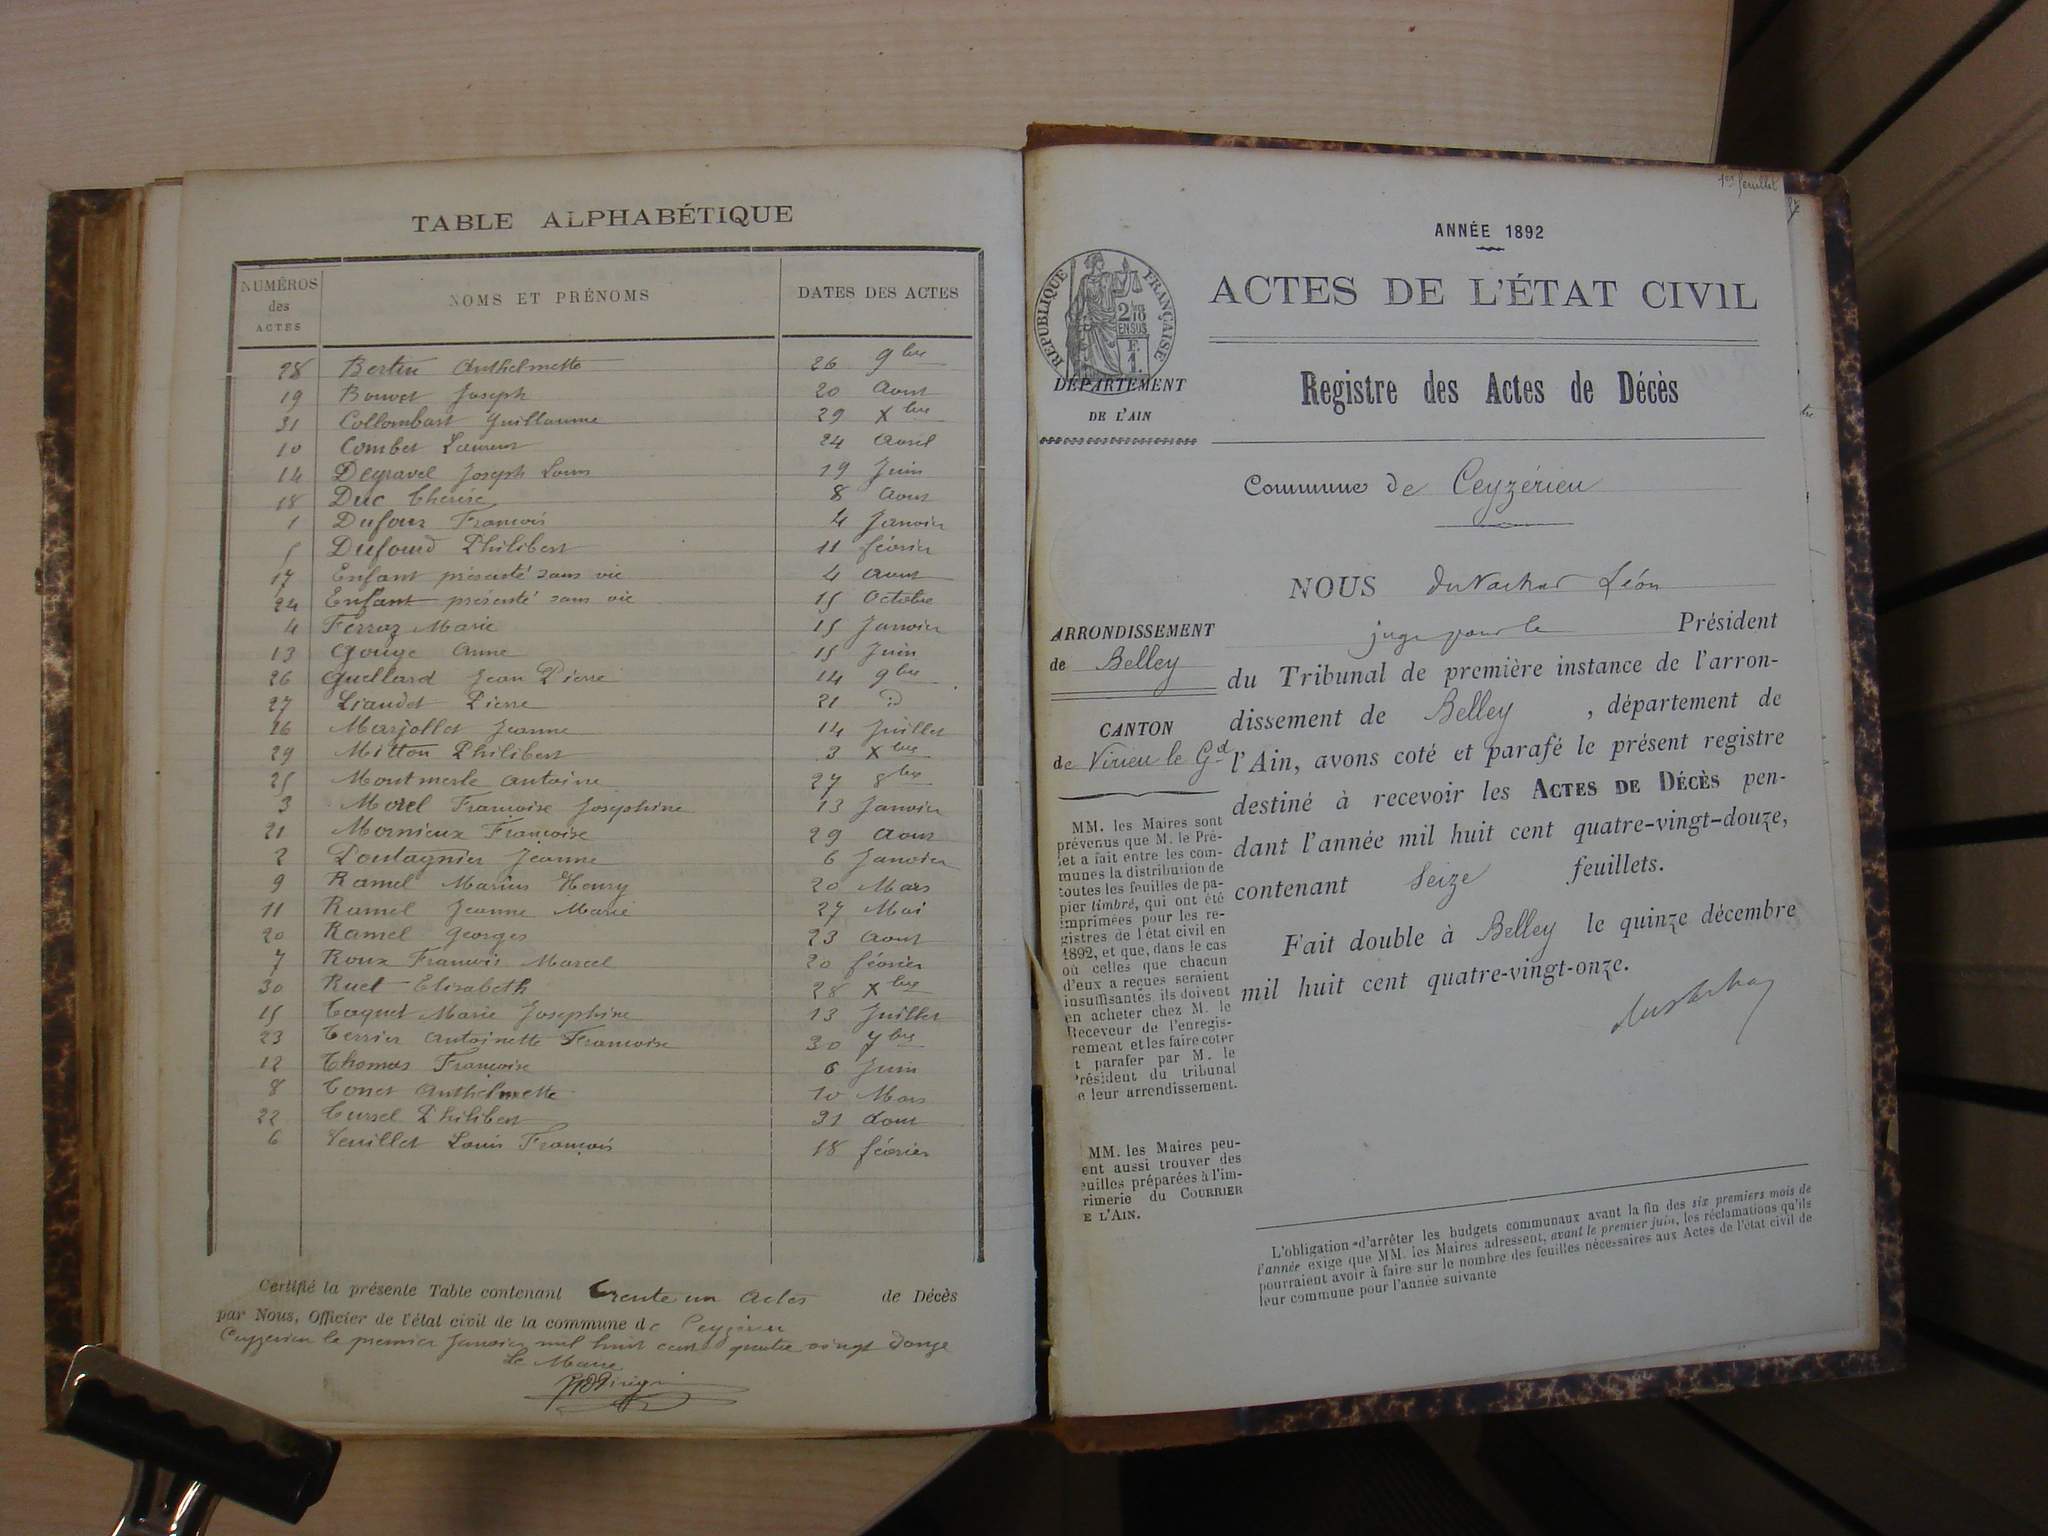 TABLE ALPHABÉTIQUE
NUMÉROS des ACTES NOMS ET PRÉNOMS DATES DES ACTES
28 Bertin Anthelmette 26 9bre
19 Bouvet Joseph 20 Aout
31 Collombart Guillaume 29 Xbre
10 Combet Laurent 24 Avril
14 Degravel Joseph Louis 19 Juin
18 Duc Thérèse 8 Aout
1 Dufour François 4 Janvier
5 Dufourd Philibert 11 février
17 Enfant présenté sans vie 4 Aout
24 Enfant présenté sans vie 15 Octobre
4 Ferraz Marie 15 Janvier
13 Gouge Anne 15 Juin
26 Guellard Jean Pierre 14 9bre
27 Liaudet Pierre 21 :d
16 Marjollet Jeanne 14 Juillet
29 Mitton Philibert 3 Xbre
25 Montmerle Antoine 27 8bre
3 Morel Françoise Joséphine 13 Janvier
21 Mornieux Françoise 29 Aout
2 Poutagnier Jeanne 6 Janvier
9 Ramel Marius Henry 20 Mars
11 Ramel Jeanne Marie 27 Mai
20 Ramel Georges 23 Aout
7 Roux Francois Marcel 20 février
30 Ruet Elisabeth 28 Xbre
15 Taquet Marie Josephine 13 Juillet
23 Terrier Antoinette Francoise 30 7bre
12 Thomas Françoise 6 Juin
8 Tonet Anthelmette 10 Mars
22 Tursel Philibert 31 Aout
6 Veuillet Louis François 18 février
Certifié la présente Table contenant Trente un Actes de Décès
par Nous, Officier de l'état civil de la commune de Ceyzérieu
Ceyzerieu le premier Janvier mil huit cent quatre vingt douze
Le Maire
1er feuillet
ANNÉE 1892
RÉPUBLIQUE FRANÇAISE
2/10
EN SUS
F.
1.
ACTES DE L'ÉTAT CIVIL
DÉPARTEMENT
DE L'AIN
Registre des Actes de Décès
Commune de Ceyzérieu
NOUS Léon
juge pour le Président
du Tribunal de première instance de l'arron-
dissement de Belley, département de
l'Ain, avons coté et parafé le présent registre
destiné à recevoir les ACTES DE DÉCÈS pen-
dant l'année mil huit cent quatre-vingt-douze,
contenant Seize feuillets.
Fait double à Belley le quinze décembre
mil huit cent quatre-vingt-onze.
ARRONDISSEMENT
de Belley
CANTON
de Virieu le Gd
MM. les Maires sont
prévenus que M. le Pré-
fet a fait entre les com-
munes la distribution de
toutes les feuilles de pa-
pier timbré, qui ont été
imprimées pour les re-
gistres de l'état civil en
1892, et que, dans le cas
où celles que chacun
d'eux a reçues seraient
insuffisantes, ils doivent
en acheter chez M. le
Receveur de l'enregis-
rement et les faire coter
t parafer par M. le
Président du tribunal
e leur arrondissement.
MM. les Maires peu-
ent aussi trouver des
euilles préparées à l'im-
rimerie du COURRIER
E L'AIN.
L'obligation d'arrêter les budgets communaux avant la fin des six premiers mois de
l'année exige que MM. les Maires adressent, avant le premier juin, les réclamations qu'ils
pourraient avoir à faire sur le nombre des feuilles nécessaires aux Actes de l'état civil de
leur commune pour l'année suivante